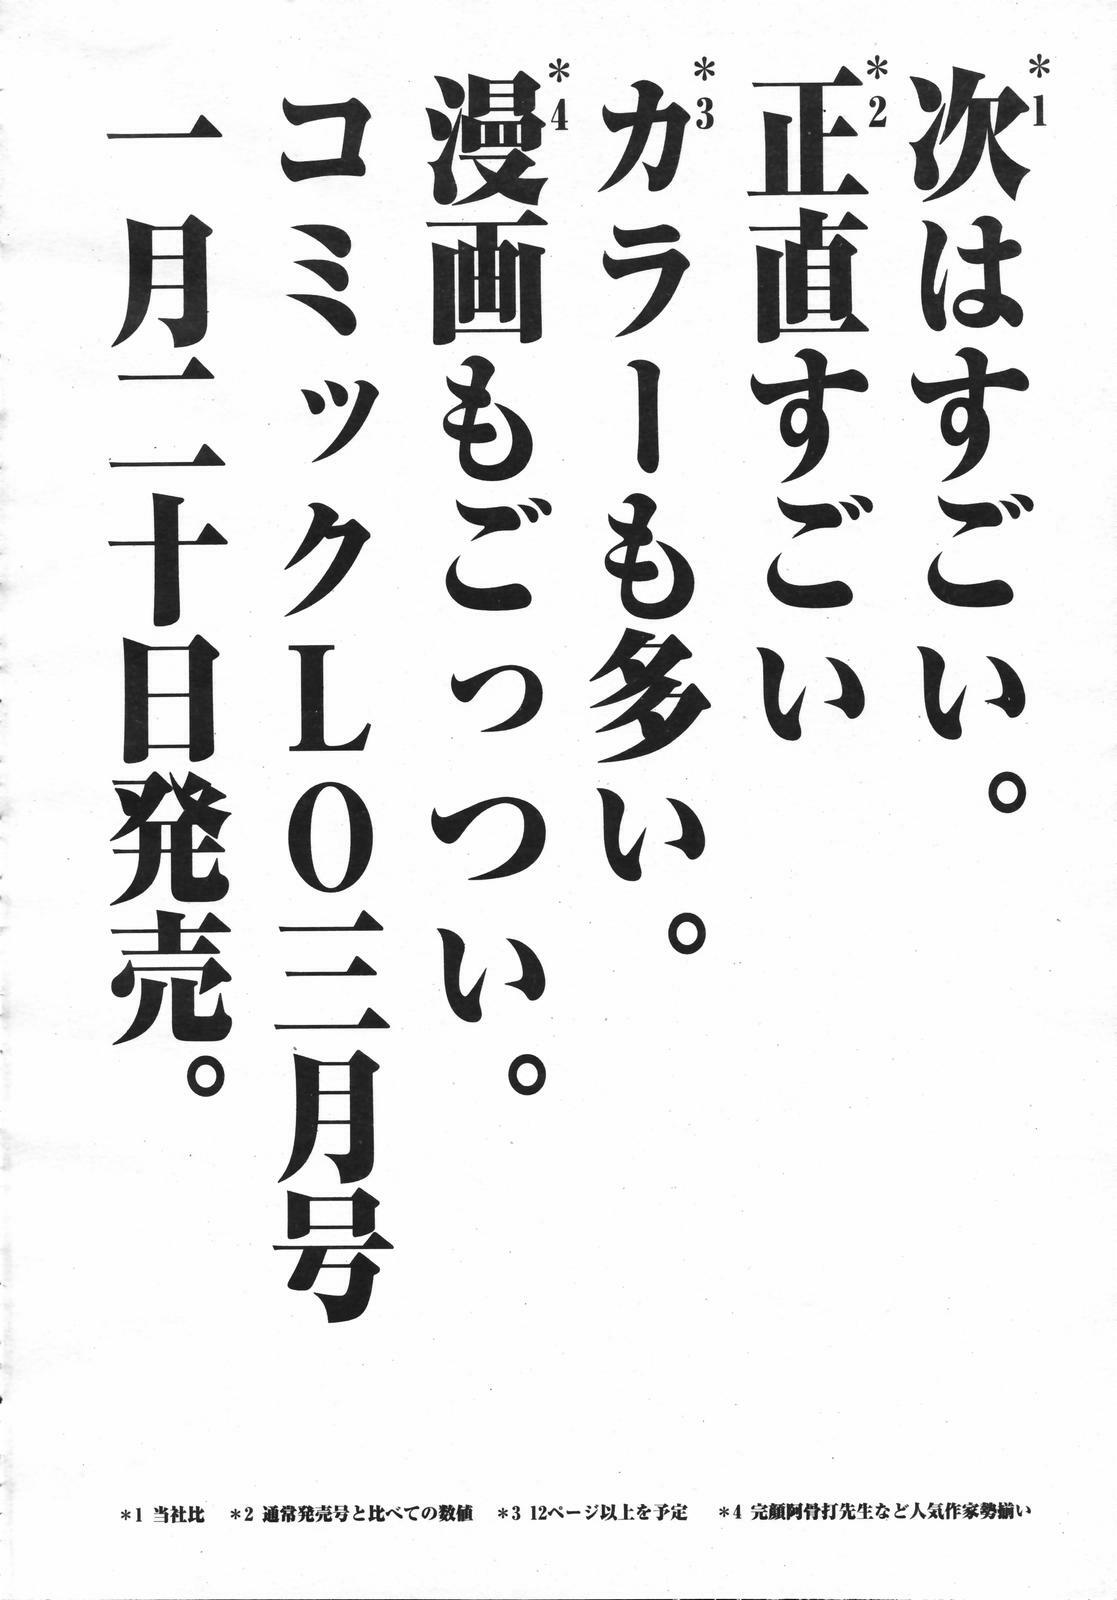 *1 次はすごい。
*2 正直すごい
*3 カラーも多い。
*4 漫画もごっつい。
コミックLO三月号
一月二十日発売。
*1 当社比 *2 通常発売号と比べての数値 *3 12ページ以上を予定 *4 完顔阿骨打先生など人気作家勢揃い